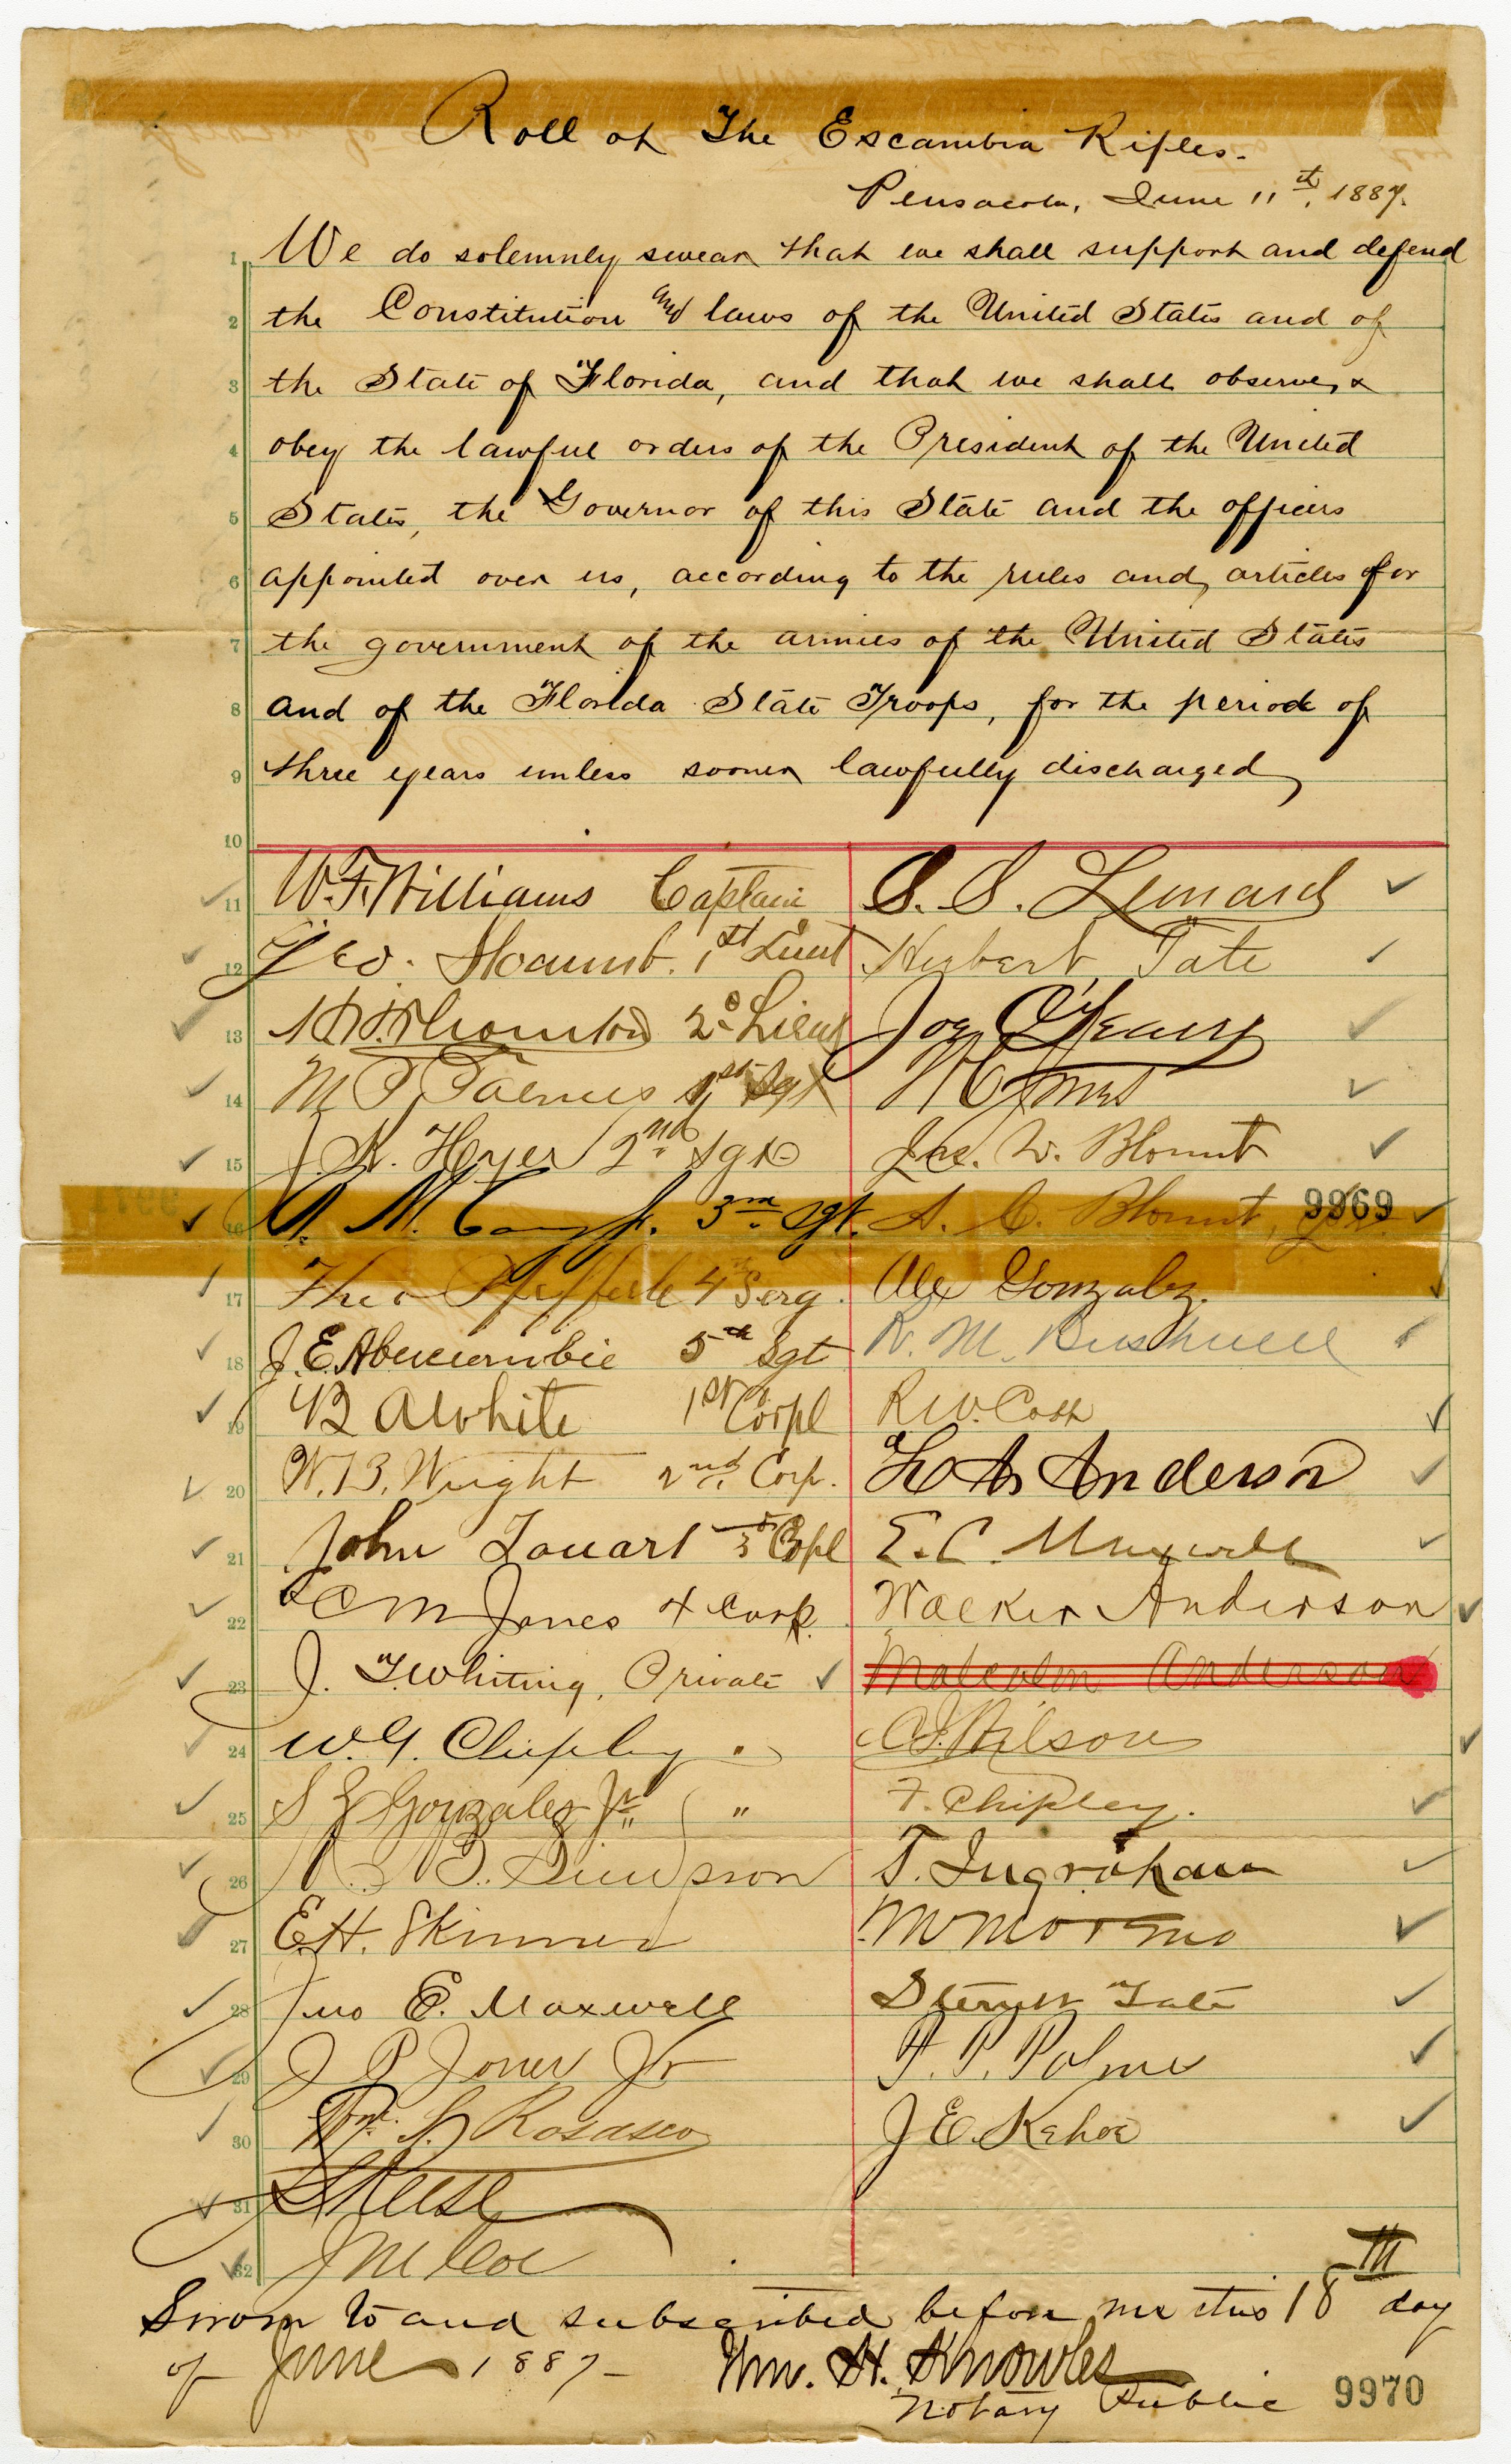 Roll of The Escambia Rifles.
Pensacola, June 11th, 1887.
1 We do solemnly swear that we shall support and defend
2 the Constitution and laws of the United States and of
3 the State of Florida, and that we shall observe, &
4 obey the lawful orders of the President of the United
5 States, the Governor of this State and the officers
6 appointed over us, according to the rules and articles for
7 the government of the armies of the United States
8 and of the Florida State Troops, for the period of
9 three years unless sooner lawfully discharged
10
11 W.F. Williams Captain S. S. Leonard
12 Geo. 1st Lieut Herbert Tate
13 2d Lieut Joe O'Leary
14 M F 1st Sgt
15 J. K. Hyer 2nd Sgt Jas. W. Blount
16 3rd Sgt. A. C. Blount, Jr. 9969
17 Theo Pfeifferle 4th Serg. Alex Gonzalez.
18 J. E. Abercrombie 5th Sgt R. M. Bushnell
19 B A White 1st Corpl R.W. Cobb
20 W. B. Wright 2nd Corp. Anderson
21 John Touart 3d Copl E. C. Maxwell
22 C M Jones 4 Corp. Walker Anderson
23 J. T. Whiting, Private Malcolm Anderson
24 W. G. Chipley " C. J. Wilson
25 S Z Gonzalez Jr " F. Chipley.
26 B. Simpson T. Ingraham
27 E. H. Skinner M Moreno
28 Jno E. Maxwell Sterrett Tate
29 J P Jones Jr P. Palmer
30 Wm. S. Rosasco J E. Kehoe
31 Reese
32 J M Coe
Sworn to and subscribed before me this 18th day
of June 1887 - Wm. H. Knowles
Notary Public 9970